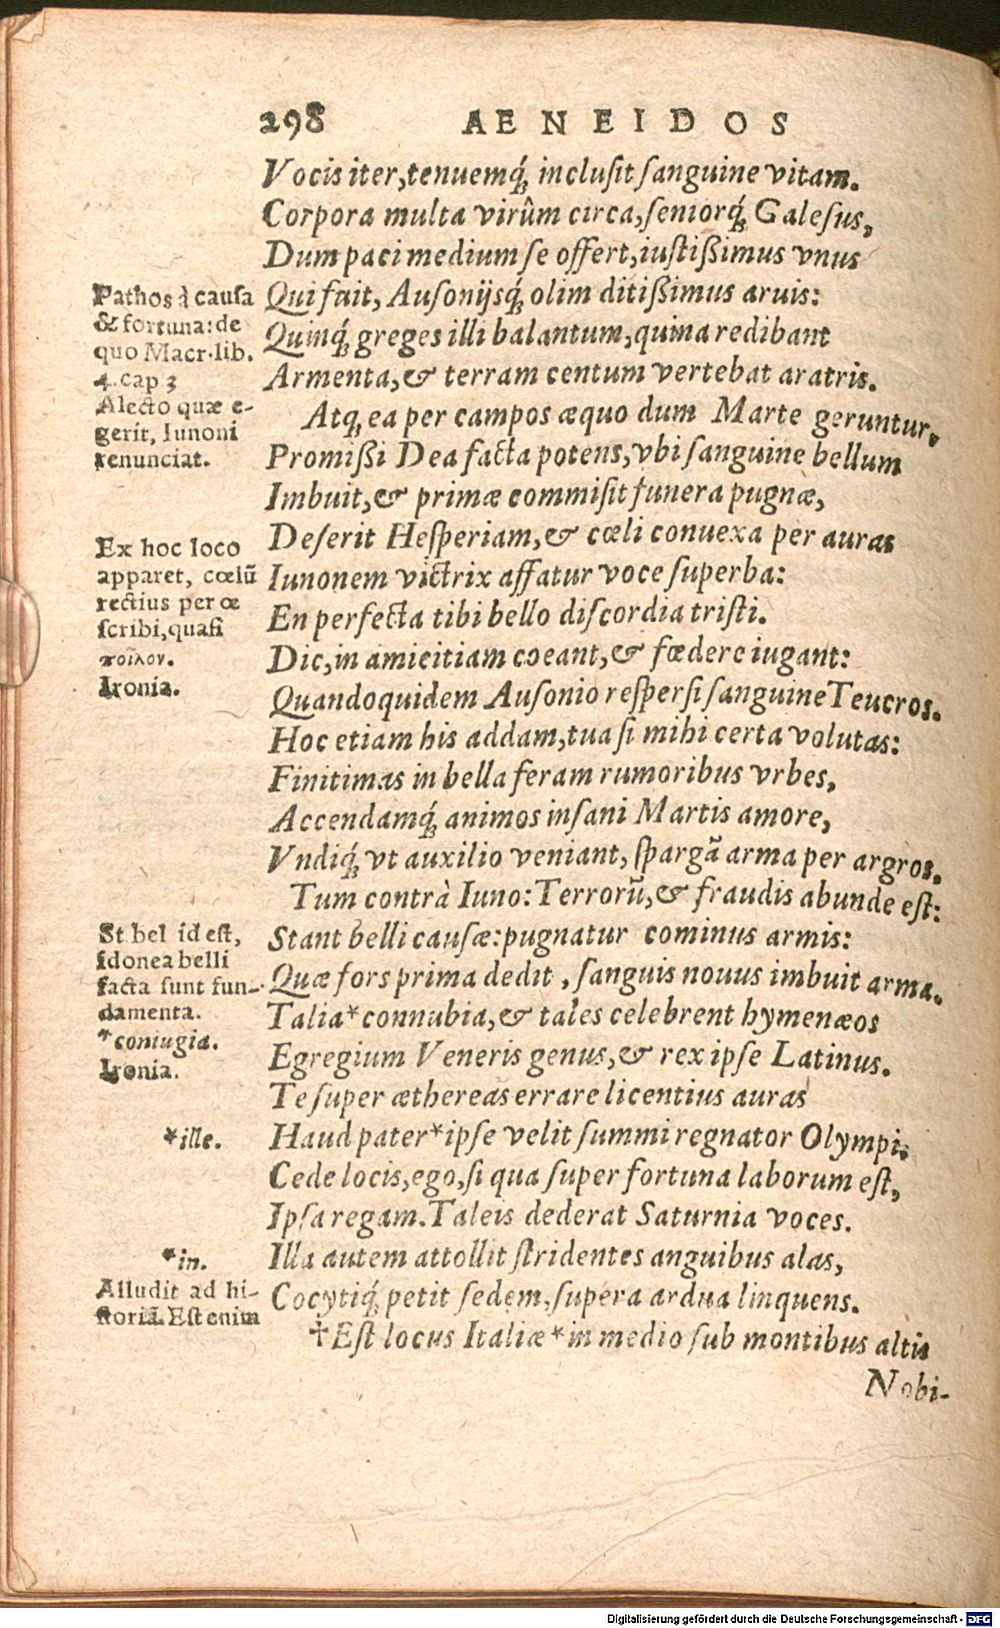 298 AENEIDOS
Vocis iter, tenuemq́; inclusit sanguine vitam.
Corpora multa virûm circa, seniorq́; Galesus,
Dum paci medium se offert, iustißimus vnus
Qui fuit, Ausonijsq́; olim ditißimus aruis:
Quinq́; greges illi balantum, quina redibant
Armenta, & terram centum vertebat aratris.
Atq; ea per campos æquo dum Marte geruntur,
Promißi Dea facta potens, vbi sanguine bellum
Imbuit, & primæ commisit funera pugnæ,
Deserit Hesperiam, & cœli conuexa per auras
Iunonem victrix affatur voce superba:
En perfecta tibi bello discordia tristi.
Dic, in amicitiam coeant, & fœdere iugant:
Quandoquidem Ausonio respersi sanguine Teucros.
Hoc etiam his addam, tua si mihi certa volutas:
Finitimas in bella feram rumoribus vrbes,
Accendamq́; animos insani Martis amore,
Vndiq́; vt auxilio veniant, spargã arma per argros.
Tum contrà Iuno: Terrorũ, & fraudis abunde est:
Stant belli causæ: pugnatur cominus armis:
Quæ fors prima dedit, sanguis nouus imbuit arma.
Talia* connubia, & tales celebrent hymenæos
Egregium Veneris genus, & rex ipse Latinus.
Te super æthereas errare licentius auras
Haud pater* ipse velit summi regnator Olympi.
Cede locis, ego, si qua super fortuna laborum est,
Ipsa regam. Taleis dederat Saturnia voces.
Illa autem attollit stridentes anguibus alas,
Cocytiq́; petit sedem, supera ardua linquens.
☩Est locus Italiæ* in medio sub montibus altis
Nobi-
Pathos à causa
& fortuna: de
quo Macr. lib.
4. cap 3
Alecto quæ e-
gerit, Iunoni
renunciat.
Ex hoc loco
apparet, cœlũ
rectius per œ
scribi, quasi
κοῖλον.
Ironia.
St bel id est,
idonea belli
facta sunt fun-
damenta.
*coniugia.
Ironia.
*ille.
*in.
Alludit ad hi-
storiã. Est enim
Digitalisierung gefördert durch die Deutsche Forschungsgemeinschaft - DFG